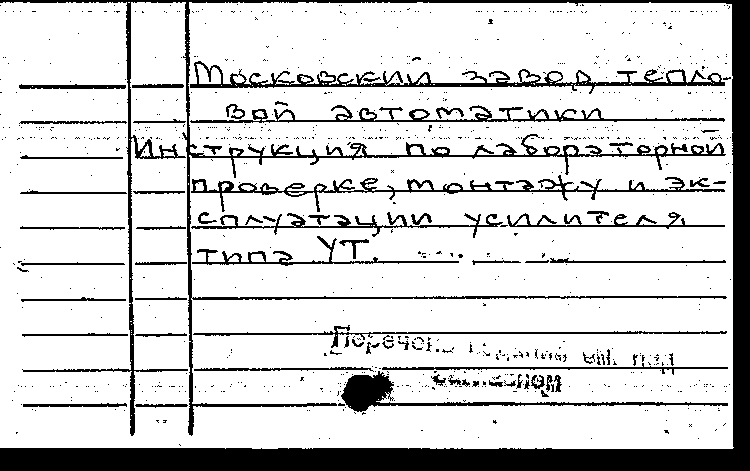 Московский завод тепло-
вой автоматики
Инструкция по лабораторной
проверке, монтажу и эк-
сплуатации усилителя
типа УТ.
Перечень изданий см. под